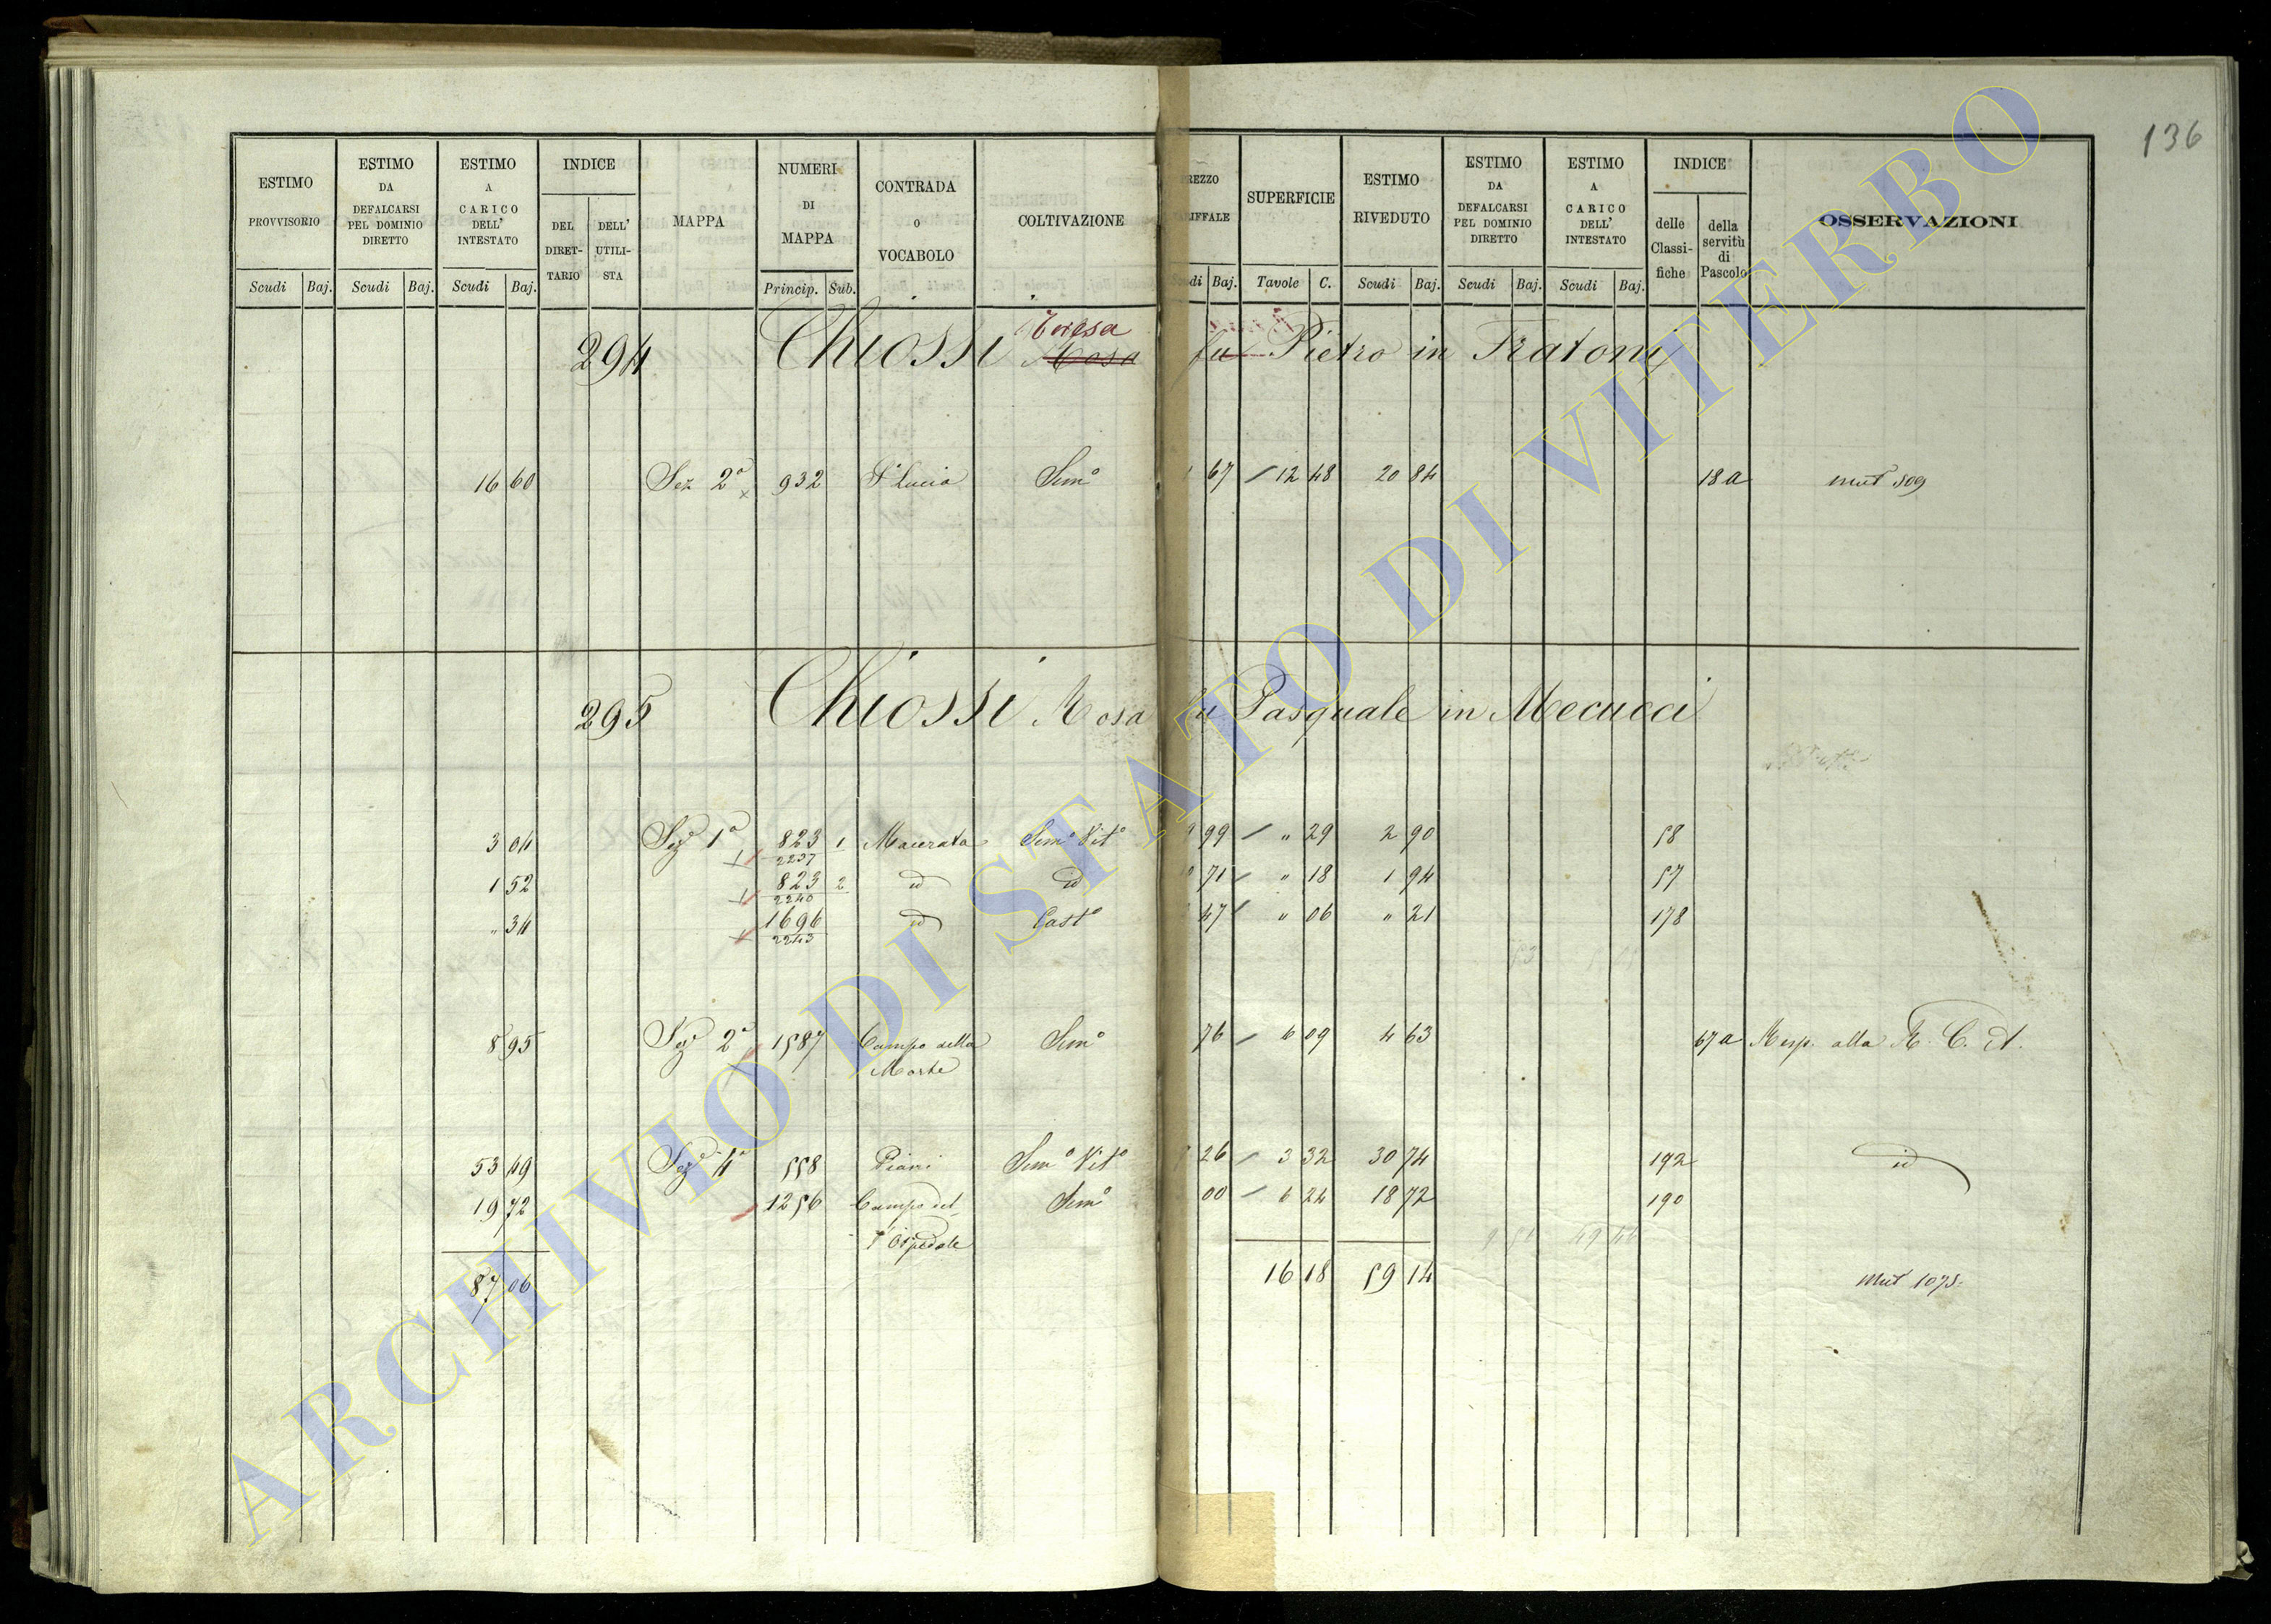 136
ESTIMO PROVVISORIO Scudi Baj.
ESTIMO DA DEFALCARSI PEL DOMINIO DIRETTO Scudi Baj.
ESTIMO A CARICO DELL' INTESTATO Scudi Baj.
INDICE DEL DIRETTARIO DELL' UTILISTA
MAPPA
NUMERI DI MAPPA Princip. Sub.
CONTRADA o VOCABOLO
COLTIVAZIONE
REZZO RIFFALE Scudi Baj.
SUPERFICIE Tavole C.
ESTIMO RIVEDUTO Scudi Baj.
ESTIMO DA DEFALCARSI PEL DOMINIO DIRETTO Scudi Baj.
ESTIMO A CARICO DELL' INTESTATO Scudi Baj.
INDICE delle Classifiche della servitù di Pascolo
OSSERVAZIONI
Teresa
294 Chiossi Rosa fu Pietro in Fratoni
16 60 Sez 2a 932 S. Lucia Semo 67 12 48 20 84 18a mut 509
295 Chiossi Rosa fu Pasquale in Mecucci
3 04 Sez 1a 823 1 Macerata Semo Vito 99 " 29 2 90 58
2237
1 52 823 2 id id 71 " 18 1 94 57
2240
" 34 1696 id Casto 47 " 06 " 21 178
2243
8 95 Sez 2a 1587 Campo della Semo 76 6 09 4 63 67a Risp. alla R. C. A.
Morte
53 49 Sez 4a 558 Piani Semo Vito 26 3 32 30 74 192 id
19 72 1256 Campo del Semo 00 6 24 18 72 190
l'Ospedale
87 06 16 18 59 14
mut 1075
ARCHIVIO DI STATO DI VITERBO